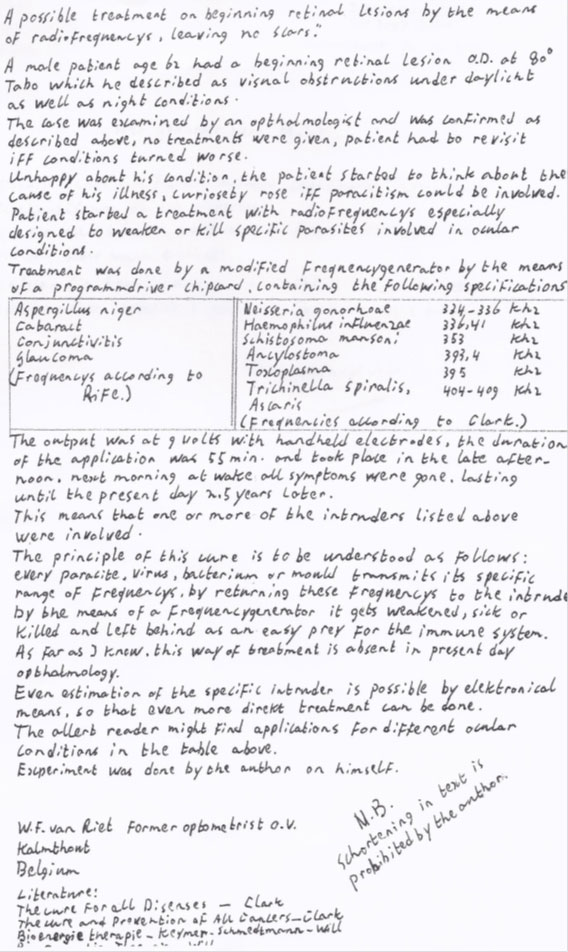 A possible treatment on beginning retinal lesions by the means
of radiofrequencys, leaving no scars."
A male patient age 62 had a beginning retinal lesion O.D. at 80°
Tabo which he described as visual obstructions under daylicht
as well as night conditions.
The case was examined by an opthalmologist and was confirmed as
described above, no treatments were given, patient had to revisit
iff conditions turned worse.
Unhappy about his condition, the patient started to think about the
cause of his illness, curiosety rose iff paracitism could be involved.
Patient started a treatment with radiofrequencys especially
designed to weaken or kill specific parasites involved in ocular
conditions.
Treatment was done by a modified frequencygenerator by the means
of a programmdriver chipcard, containing the following specifications
Aspergillus niger
Cataract
Conjunctivitis
Glaucoma
(Frequencys according to
Rife.)
Neisseria gonorhoae 334-336 Khz
Haemophilus influenzae 336,41 Khz
Schistosoma mansoni 353 Khz
Ancylostoma 393,4 Khz
Toxoplasma 395 Khz
Trichinella spiralis, 404-409 Khz
Ascaris
(Frequencies according to Clark.)
The output was at 9 volts with handheld electrodes, the duration
of the application was 55 min. and took place in the late after-
noon, next morning at wake all symptoms were gone, lasting
until the present day 2.5 years later.
This means that one or more of the intruders listed above
were involved.
The principle of this cure is to be understood as follows:
every paracite, virus, bacterium or mould transmits its specific
range of frequencys, by returning these frequencys to the intrude
by the means of a frequencygenerator it gets weakened, sick or
killed and left behind as an easy prey for the immune system.
As far as I know, this way of treatment is absent in present day
opthalmology.
Even estimation of the specific intruder is possible by elektronical
means, so that even more direkt treatment can be done.
The allert reader might find applications for different ocular
conditions in the table above.
Experiment was done by the author on himself.
N.B.
Schortening in text is
prohibited by the author.
W.F. van Riet Former optometrist O.V.
Kalmthout
Belgium
Literature:
The cure For all Diseases - Clark
The cure and Prevention of All Cancers - Clark
Bioenergie therapie - Keymer - Schmedtmann - Will